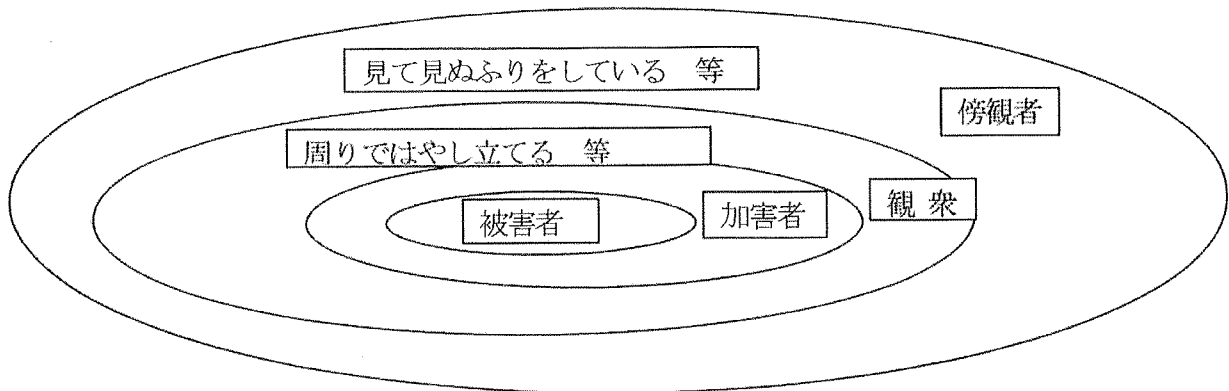 見て見ぬふりをしている　等
傍観者
周りではやし立てる　等
観 衆
加害者
被害者